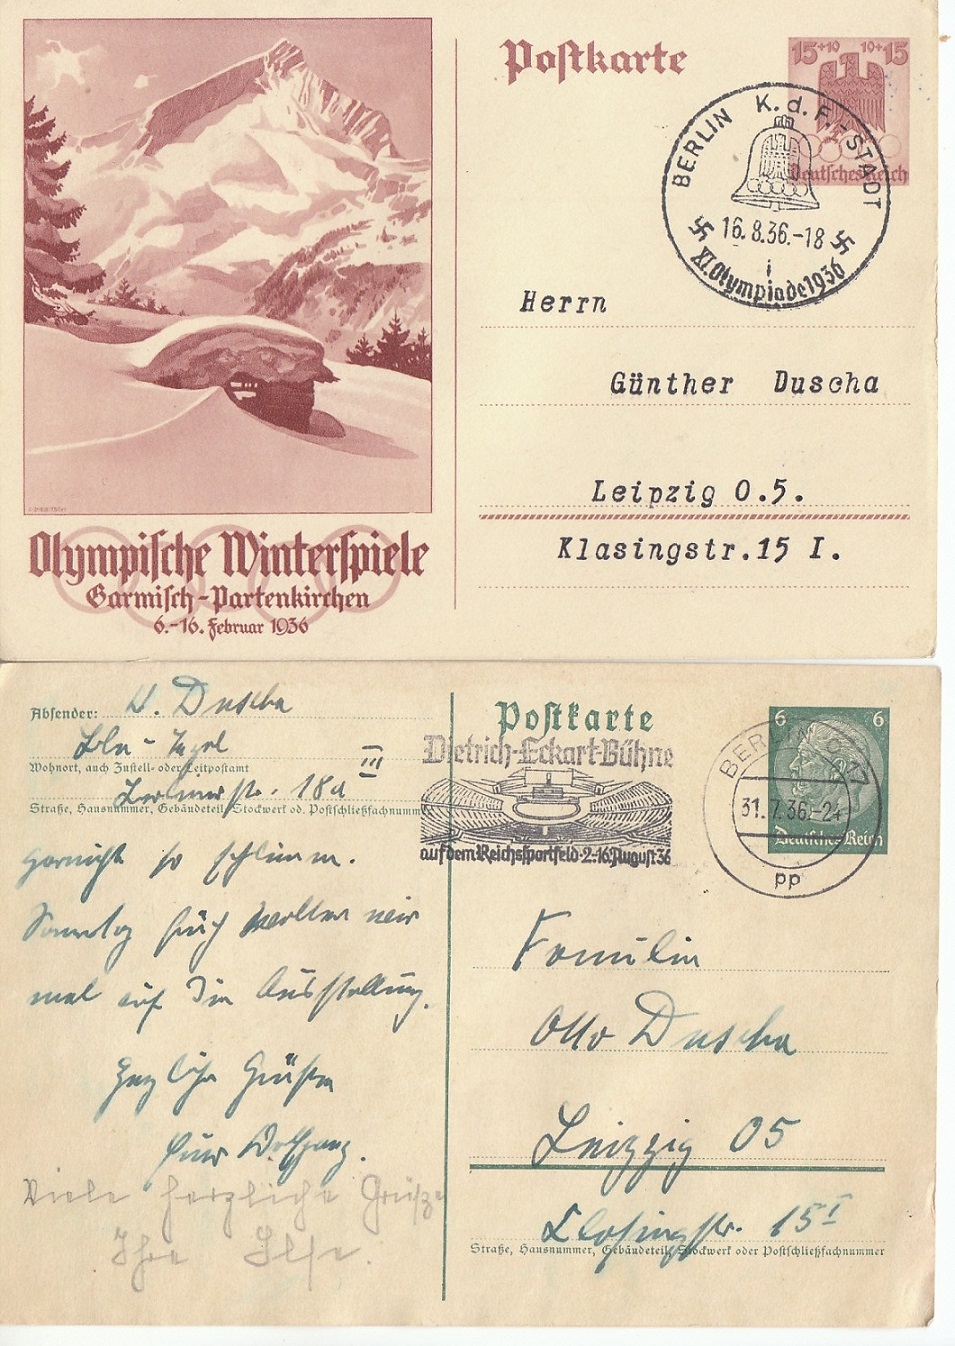 Postkarte
15+10 10+15
Deutsches Reich
BERLIN K.d.F.-STADT
16.8.36.-18
i
XI.Olympiade1936
Herrn
Günther Duscha
Leipzig O.5.
Klasingstr.15 I.
Olympische Winterspiele
Garmisch-Partenkirchen
6.-16. Februar 1936
Absender: W. Duscha
Bln-Tegel
Wohnort, auch Zustell- oder Leitpostamt
Berlinerstr. 18a III
Straße, Hausnummer, Gebäudeteil, Stockwerk od. Postschließfachnummer
garnicht so schlimm.
Sonntag früh wollen wir
mal auf die Ausstellung.
Herzliche Grüße
Euer Wolfgang.
Viele herzliche Grüße
Ihre Ilse.
Postkarte
Dietrich-Eckart-Bühne
auf dem Reichssportfeld·2.-16.August 36
BERLIN O 17
31.7.36.-24
pp
6 6
Deutsches Reich
Familie
Otto Duscha
Leipzig O5
Klasingstr. 15 I
Straße, Hausnummer, Gebäudeteil, Stockwerk oder Postschließfachnummer